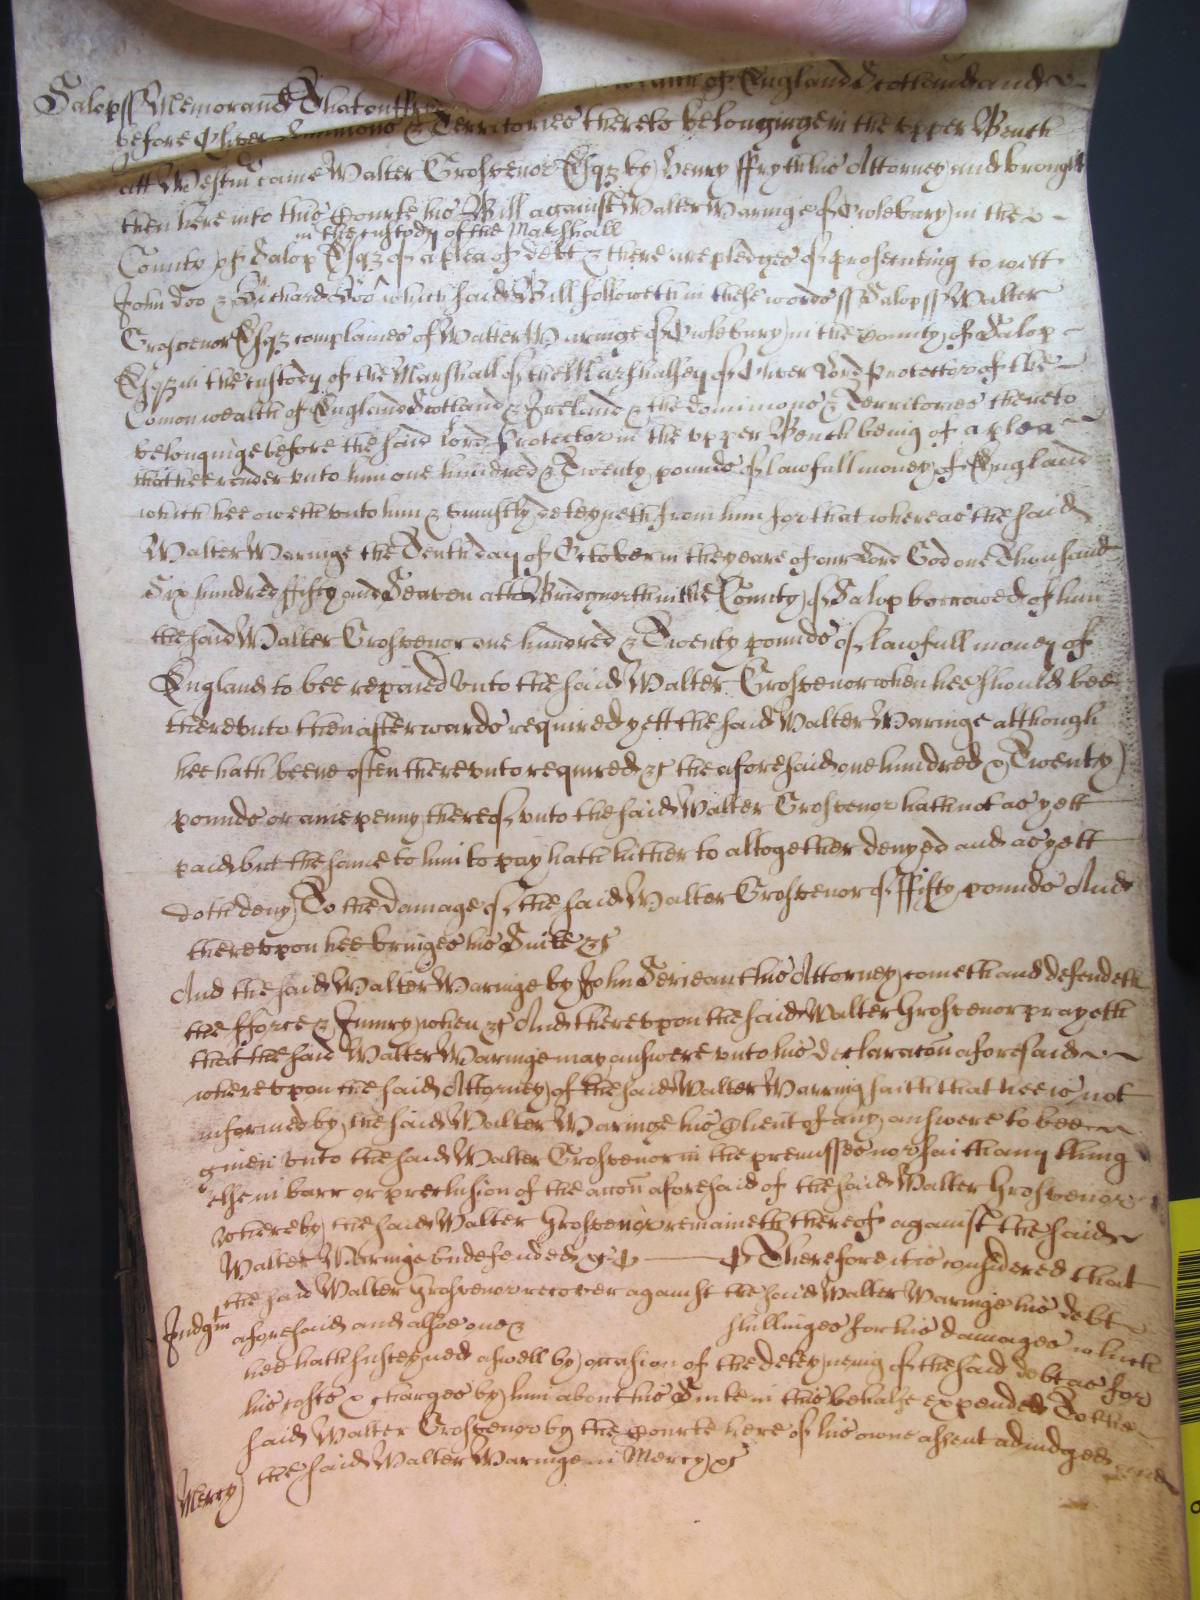 Salop ss Memorand That on ffry of England Scotland and
before Oliver dominions & Territories thereto belonginge in the upper Bench
att Westm came Walter Grosvenor Esqz by Henry ffryth his Attorney and brought
then here into this Courte his Bill against Walter Waringe of Owlebury in the
in the custody of the Marshall
County of Salop Esqz of a plea of debt & there are pledges of prosecuting to witt
John Doo & Richard Roo which said Bill followeth in these words ss Salop ss Walter
Grosvenor Esqz complaines of Walter Waringe of Owlebury in the County of Salop
Esqz in the custody of the Marshall of the Marshalsey of Oliver Lord Protector of the
Comon wealth of England Scotland & Ireland & the dominions & Territories thereto
belonginge before the said Lord Protector in the upper Bench being of a plea
that hee render unto him one hundred & Twenty pounds of lawfull money of England
which hee oweth unto him & uniustly deteyneth from him for that whereas the said
Walter Waringe the Tenth day of October in the yeare of our Lord God one Thousand
Six hundred ffifty and Seaven att Bridgnorth in the County of Salop borrowed of him
the said Walter Grosvenor one hundred & Twenty pounds of lawfull money of
England to bee repaied unto the said Walter Grosvenor when hee should bee
thereunto then afterwards required yett the said Walter Waringe although
hee hath beene often thereunto required &c the aforesaid one hundred & Twenty
pounds or anie penny thereof unto the said Walter Grosvenor hath not as yett
paid but the same to him to pay hath hither to altogether denyed and as yett
doth deny To the damage of the said Walter Grosvenor of ffifty pounds And
thereupon hee bringes his Suite &c
And the said Walter Waringe by John Serieant his Attorney cometh and defendeth
the fforce & Iniury when &c And thereupon the said Walter Grosvenor prayeth
that the said Walter Waringe may answere unto his declaracon aforesaid
whereupon the said Attorney of the said Walter Warring saith that hee is not
informed by the said Walter Waringe his Client of any answere to bee
given unto the said Walter Grosvenor in the premisses nor saith any thing
else in barr or preclusion of the accon aforesaid of the said Walter Grosvenor
whereby the said Walter Grosvenor remaineth thereof against the said
Walter Waringe undefended &c Therefore it is considered that
the said Walter Grosvenor recover against the said Walter Waringe his debt
Judgm aforesaid and alsoe one & shillinges for his damages which
hee hath susteyned aswell by occasion of the deteyneing of the said debt as for
his costs & charges by him about his Suite in this behalfe expended To the
said Walter Grosvenor by the Courte here of his owne assent adiudged and
Mercy the said Walter Waringe in Mercy &c